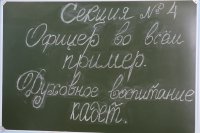 Секция № 4
Офицер во всём
пример.
Духовное воспитание
кадет.